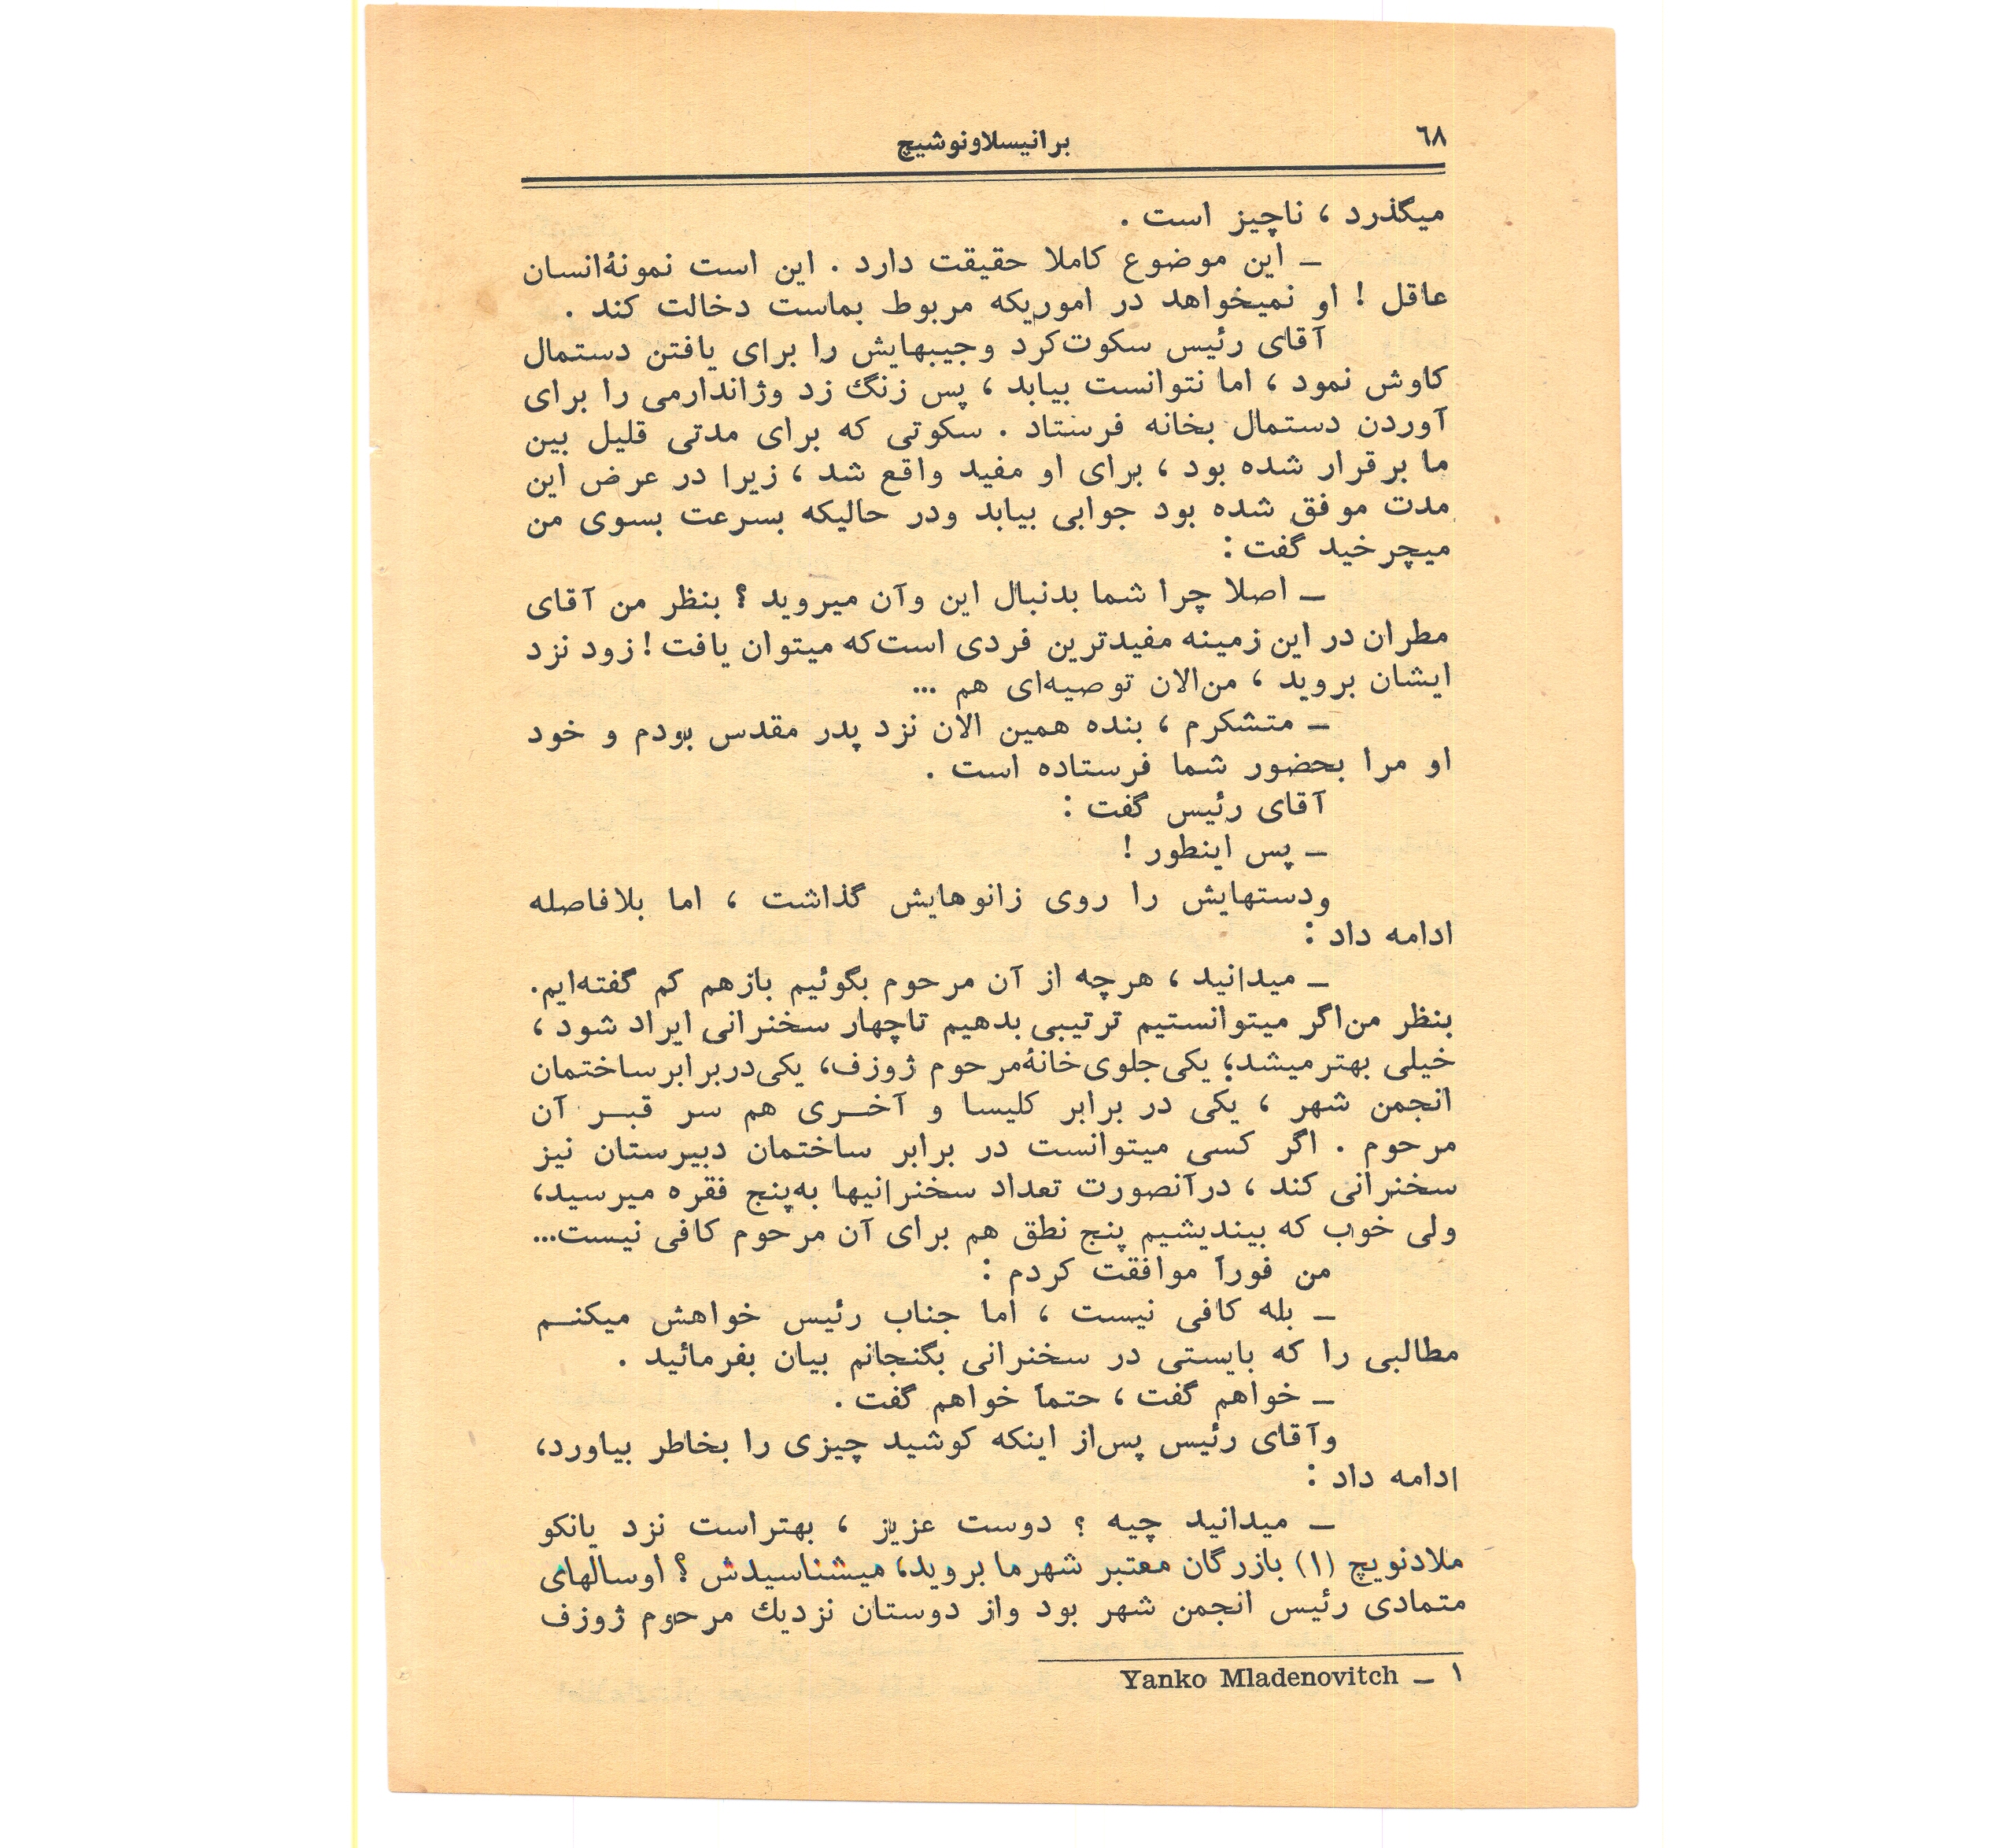 ٦٨
برانیسلاونوشیچ
میگذرد ، ناچیز است .
ـ این موضوع کاملا حقیقت دارد . این است نمونهٔانسان
عاقل ! او نمیخواهد در اموریکه مربوط بماست دخالت کند .
آقای رئیس سکوت‌کرد وجیبهایش را برای یافتن دستمال
کاوش نمود ، اما نتوانست بیابد ، پس زنگ زد وژاندارمی را برای
آوردن دستمال بخانه فرستاد . سکوتی که برای مدتی قلیل بین
ما برقرار شده بود ، برای او مفید واقع شد ، زیرا در عرض این
مدت موفق شده بود جوابی بیابد ودر حالیکه بسرعت بسوی من
میچرخید گفت :
ـ اصلا چرا شما بدنبال این وآن میروید ؟ بنظر من آقای
مطران در این زمینه مفیدترین فردی است‌که میتوان یافت ! زود نزد
ایشان بروید ، من‌الان توصیه‌ای هم ...
ـ متشکرم ، بنده همین الان نزد پدر مقدس بودم و خود
او مرا بحضور شما فرستاده است .
آقای رئیس گفت :
ـ پس اینطور !
ودستهایش را روی زانوهایش گذاشت ، اما بلافاصله
ادامه داد :
ـ میدانید ، هرچه از آن مرحوم بگوئیم بازهم کم گفته‌ایم.
بنظر من‌اگر میتوانستیم ترتیبی بدهیم تاچهار سخنرانی ایراد شود ،
خیلی بهترمیشد؛ یکی‌جلوی‌خانهٔ‌مرحوم ژوزف، یکی‌دربرابرساختمان
انجمن شهر ، یکی در برابر کلیسا و آخـری هم سر قبـر آن
مرحوم . اگر کسی میتوانست در برابر ساختمان دبیرستان نیز
سخنرانی کند ، درآنصورت تعداد سخنرانیها به‌پنج فقره میرسید،
ولی خوب که بیندیشیم پنج نطق هم برای آن مرحوم کافی نیست...
من فوراً موافقت کردم :
ـ بله کافی نیست ، اما جناب رئیس خواهش میکنـم
مطالبی را که بایستی در سخنرانی بگنجانم بیان بفرمائید .
ـ خواهم گفت ، حتماً خواهم گفت .
وآقای رئیس پس‌از اینکه کوشید چیزی را بخاطر بیاورد،
ادامه داد :
ـ میدانید چیه ؟ دوست عزیز ، بهتراست نزد یانکو
ملادنویچ (۱) بازرگان معتبر شهرما بروید، میشناسیدش ؟ اوسالهای
متمادی رئیس انجمن شهر بود واز دوستان نزدیك مرحوم ژوزف
۱ ـ Yanko Mladenovitch